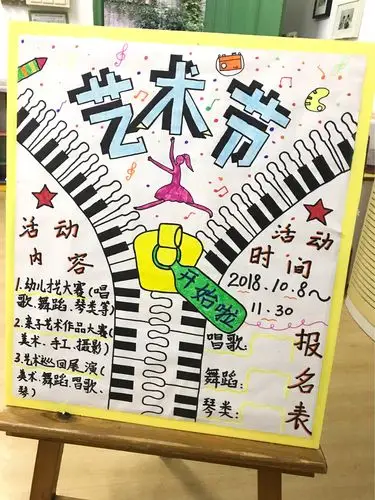 艺术节
开始啦
活动
内容
1.幼儿才艺大赛(唱
歌.舞蹈.琴类等)
2.亲子艺术作品大赛(
美术.手工.摄影)
3.艺术巡回展演(
美术.舞蹈.唱歌.
琴)
活动
时间
2018.10.8~
11.30
报名表
唱歌:
舞蹈:
琴类: